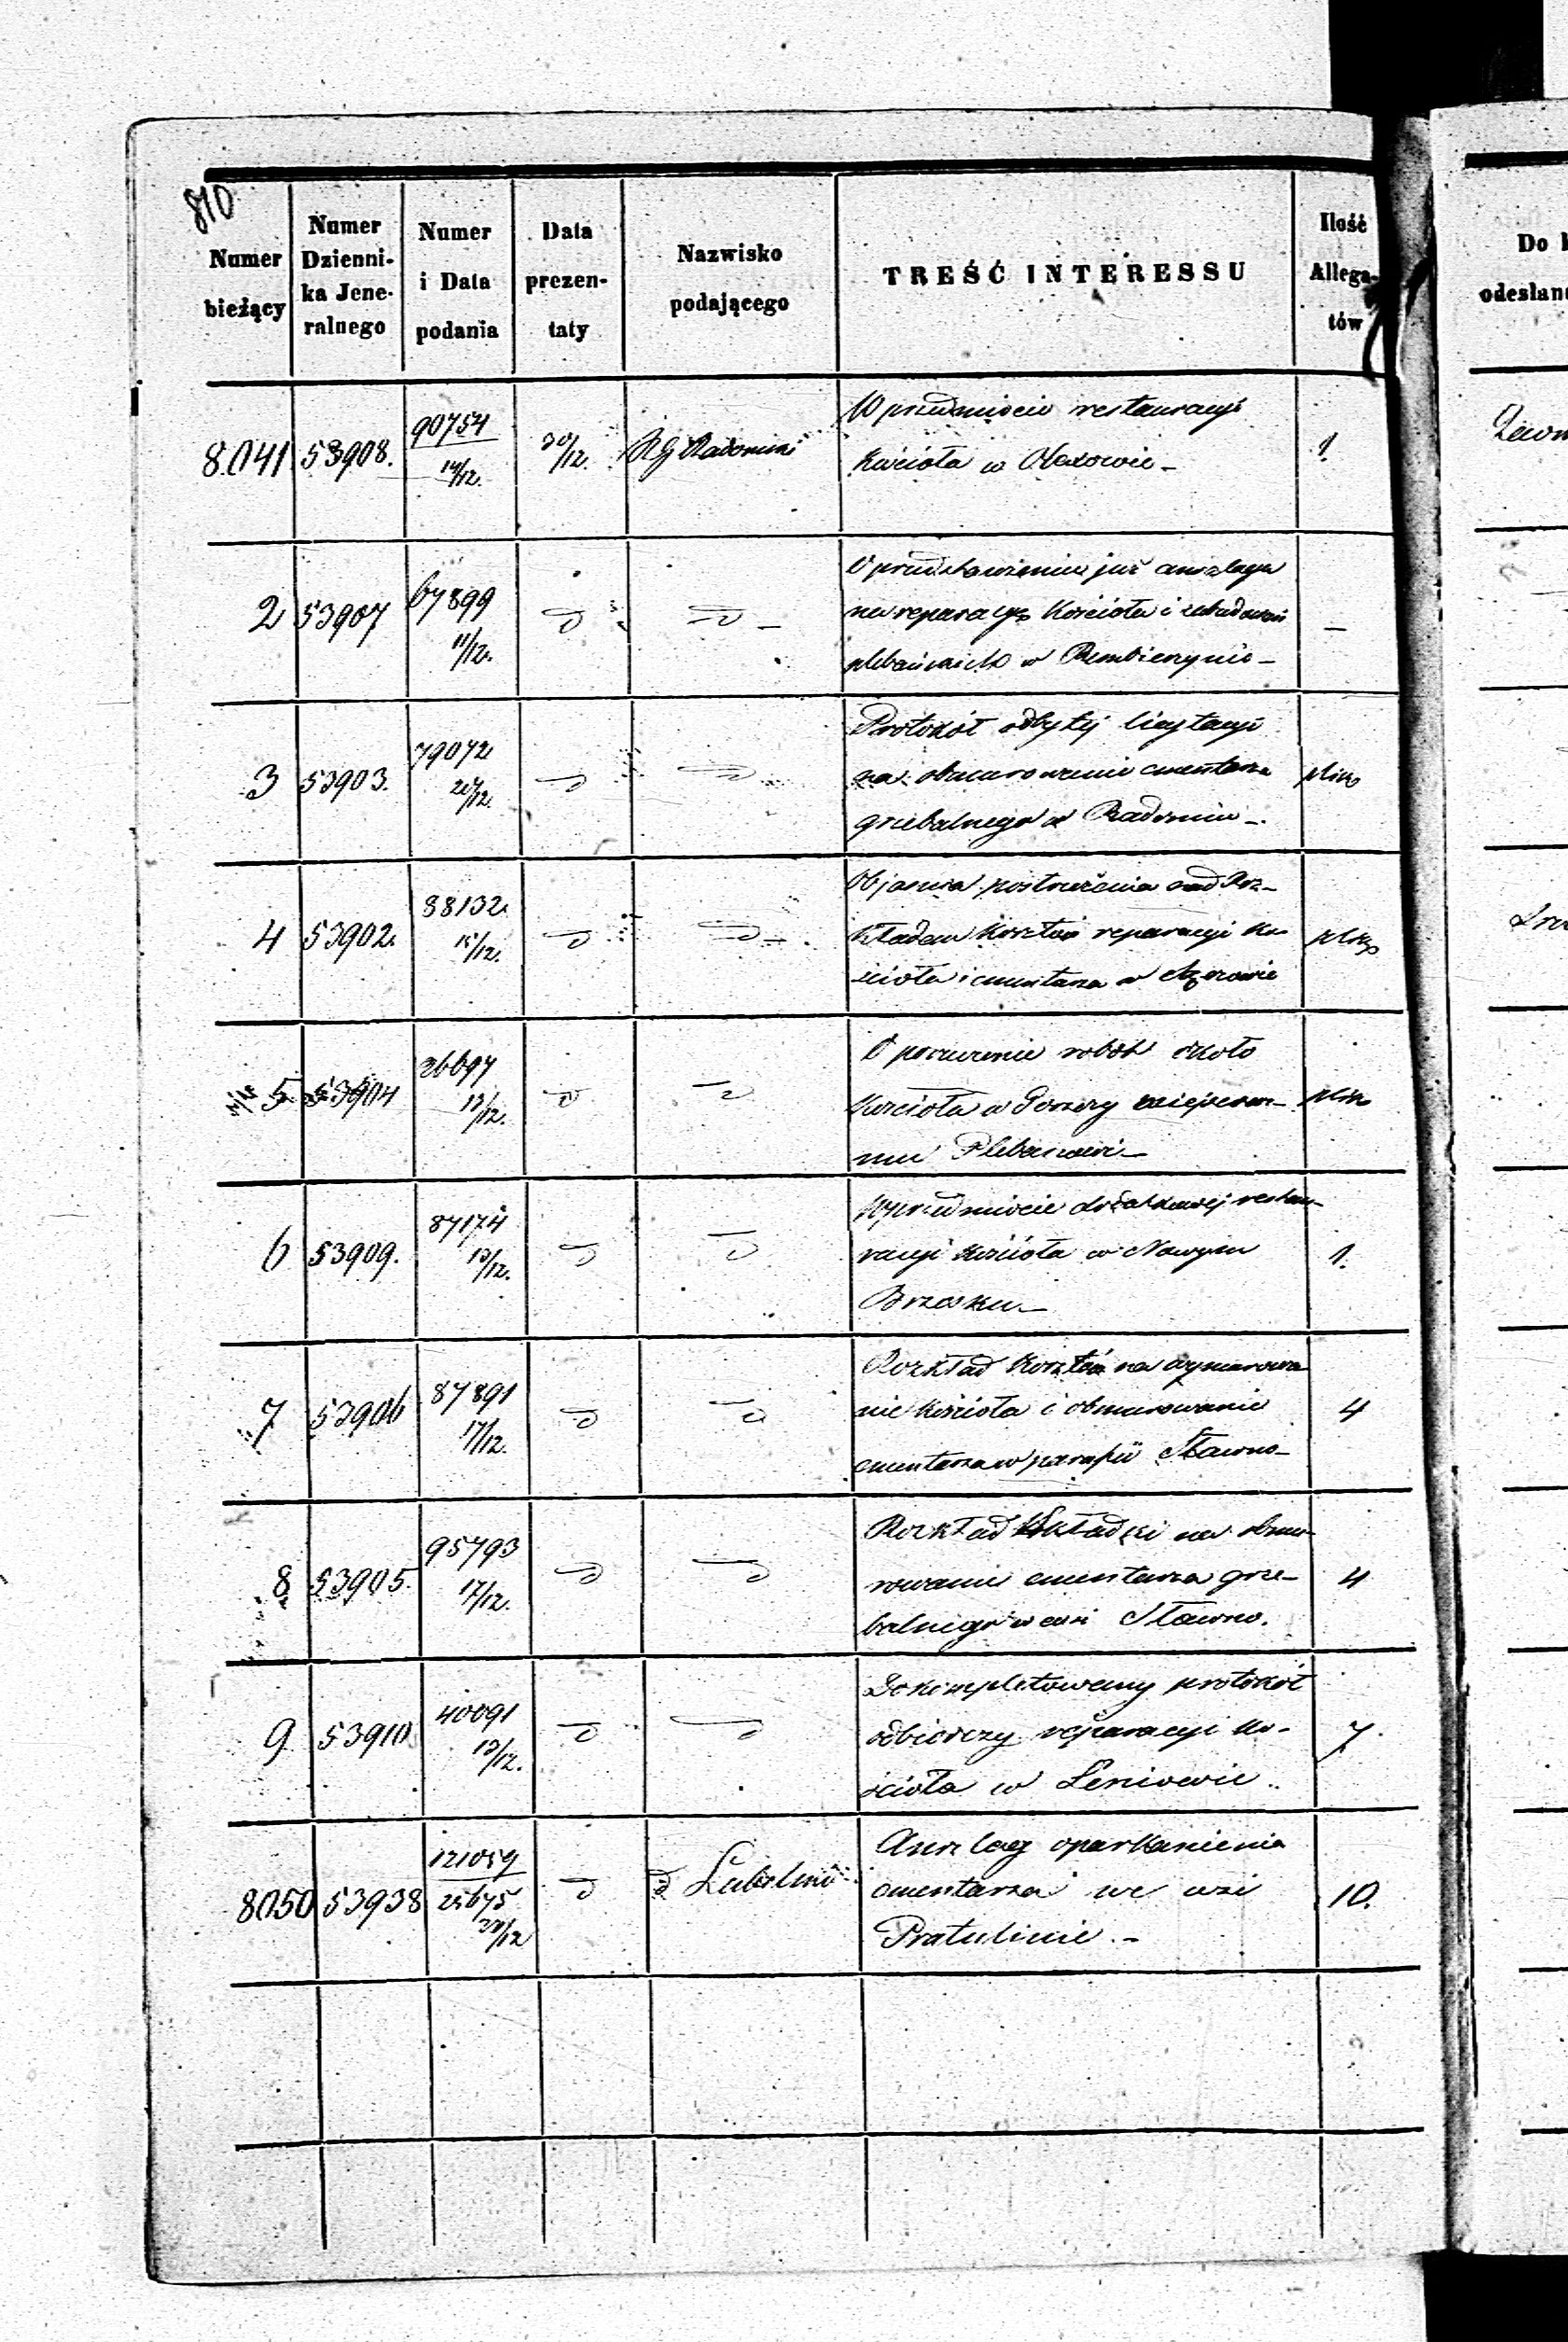 810
Numer bieżący
Numer Dzienni- ka Jene- ralnego
Numer i Data podania
Data prezen- taty
Nazwisko podającego
TREŚĆ INTERESSU
Ilość Allega- tów
8.041 53908. 90754 14/12. 30/12. RG Radomski
W przedmiocie restauracyi
kościoła w
1.
2 53907 67899 11/12. d d –
O przedstawienie już anszlagu
na reparacyę Kościoła i zabudowań
plebańskich w –
–
3 53903. 79072 /12. d d
Protokół odbytej licytacyi
na obmurowanie cmentarza
grzebalnego w Radomiu –.
plik
4 53902. 88132 15/12. d d –.
Objaśnia postrzeżenia nad Roz-
kładem kosztów reparacyi ko-
ścioła i cmentarza w
5 53904 26697 13/12. d d
O poruczenie robót około
Kościoła w miejscowe-
mu Plebanowi –
plik
6 53909. 87174 13/12. d d
W przedmiocie dodatkowej restau-
racyi kościoła w Nowym
Brzesku –
1.
7 53906 87891 17/12. d d
Rozkład kosztów na wymurowa
nie kościoła i obmurowanie
cmentarza w parafii Sławno –
4
8 53905. 95793 17/12. d d
Rozkład składki na obmu-
rowanie cmentarza grze-
balnego w wsi Sławno.
4
9 53910 40091 13/12. d d
Dokompletowany protokół
odbiorczy reparacyi ko-
ścioła w
7.
8050 53938 121059 25675 /12 d d Lubelski
Anszlag oparkanienia
cmentarza we wsi
Pratulinie. –
10.
Do
odesłan